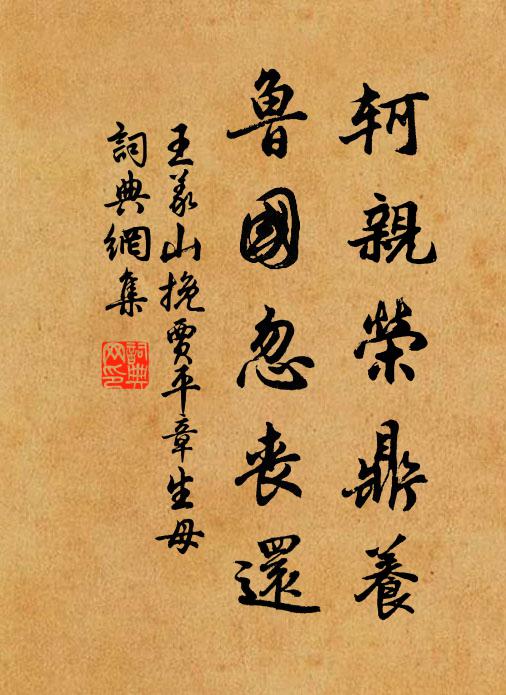 軻親榮鼎養
魯國忽喪還
王義山挽賈平章生母
詞典網集
詞典網印